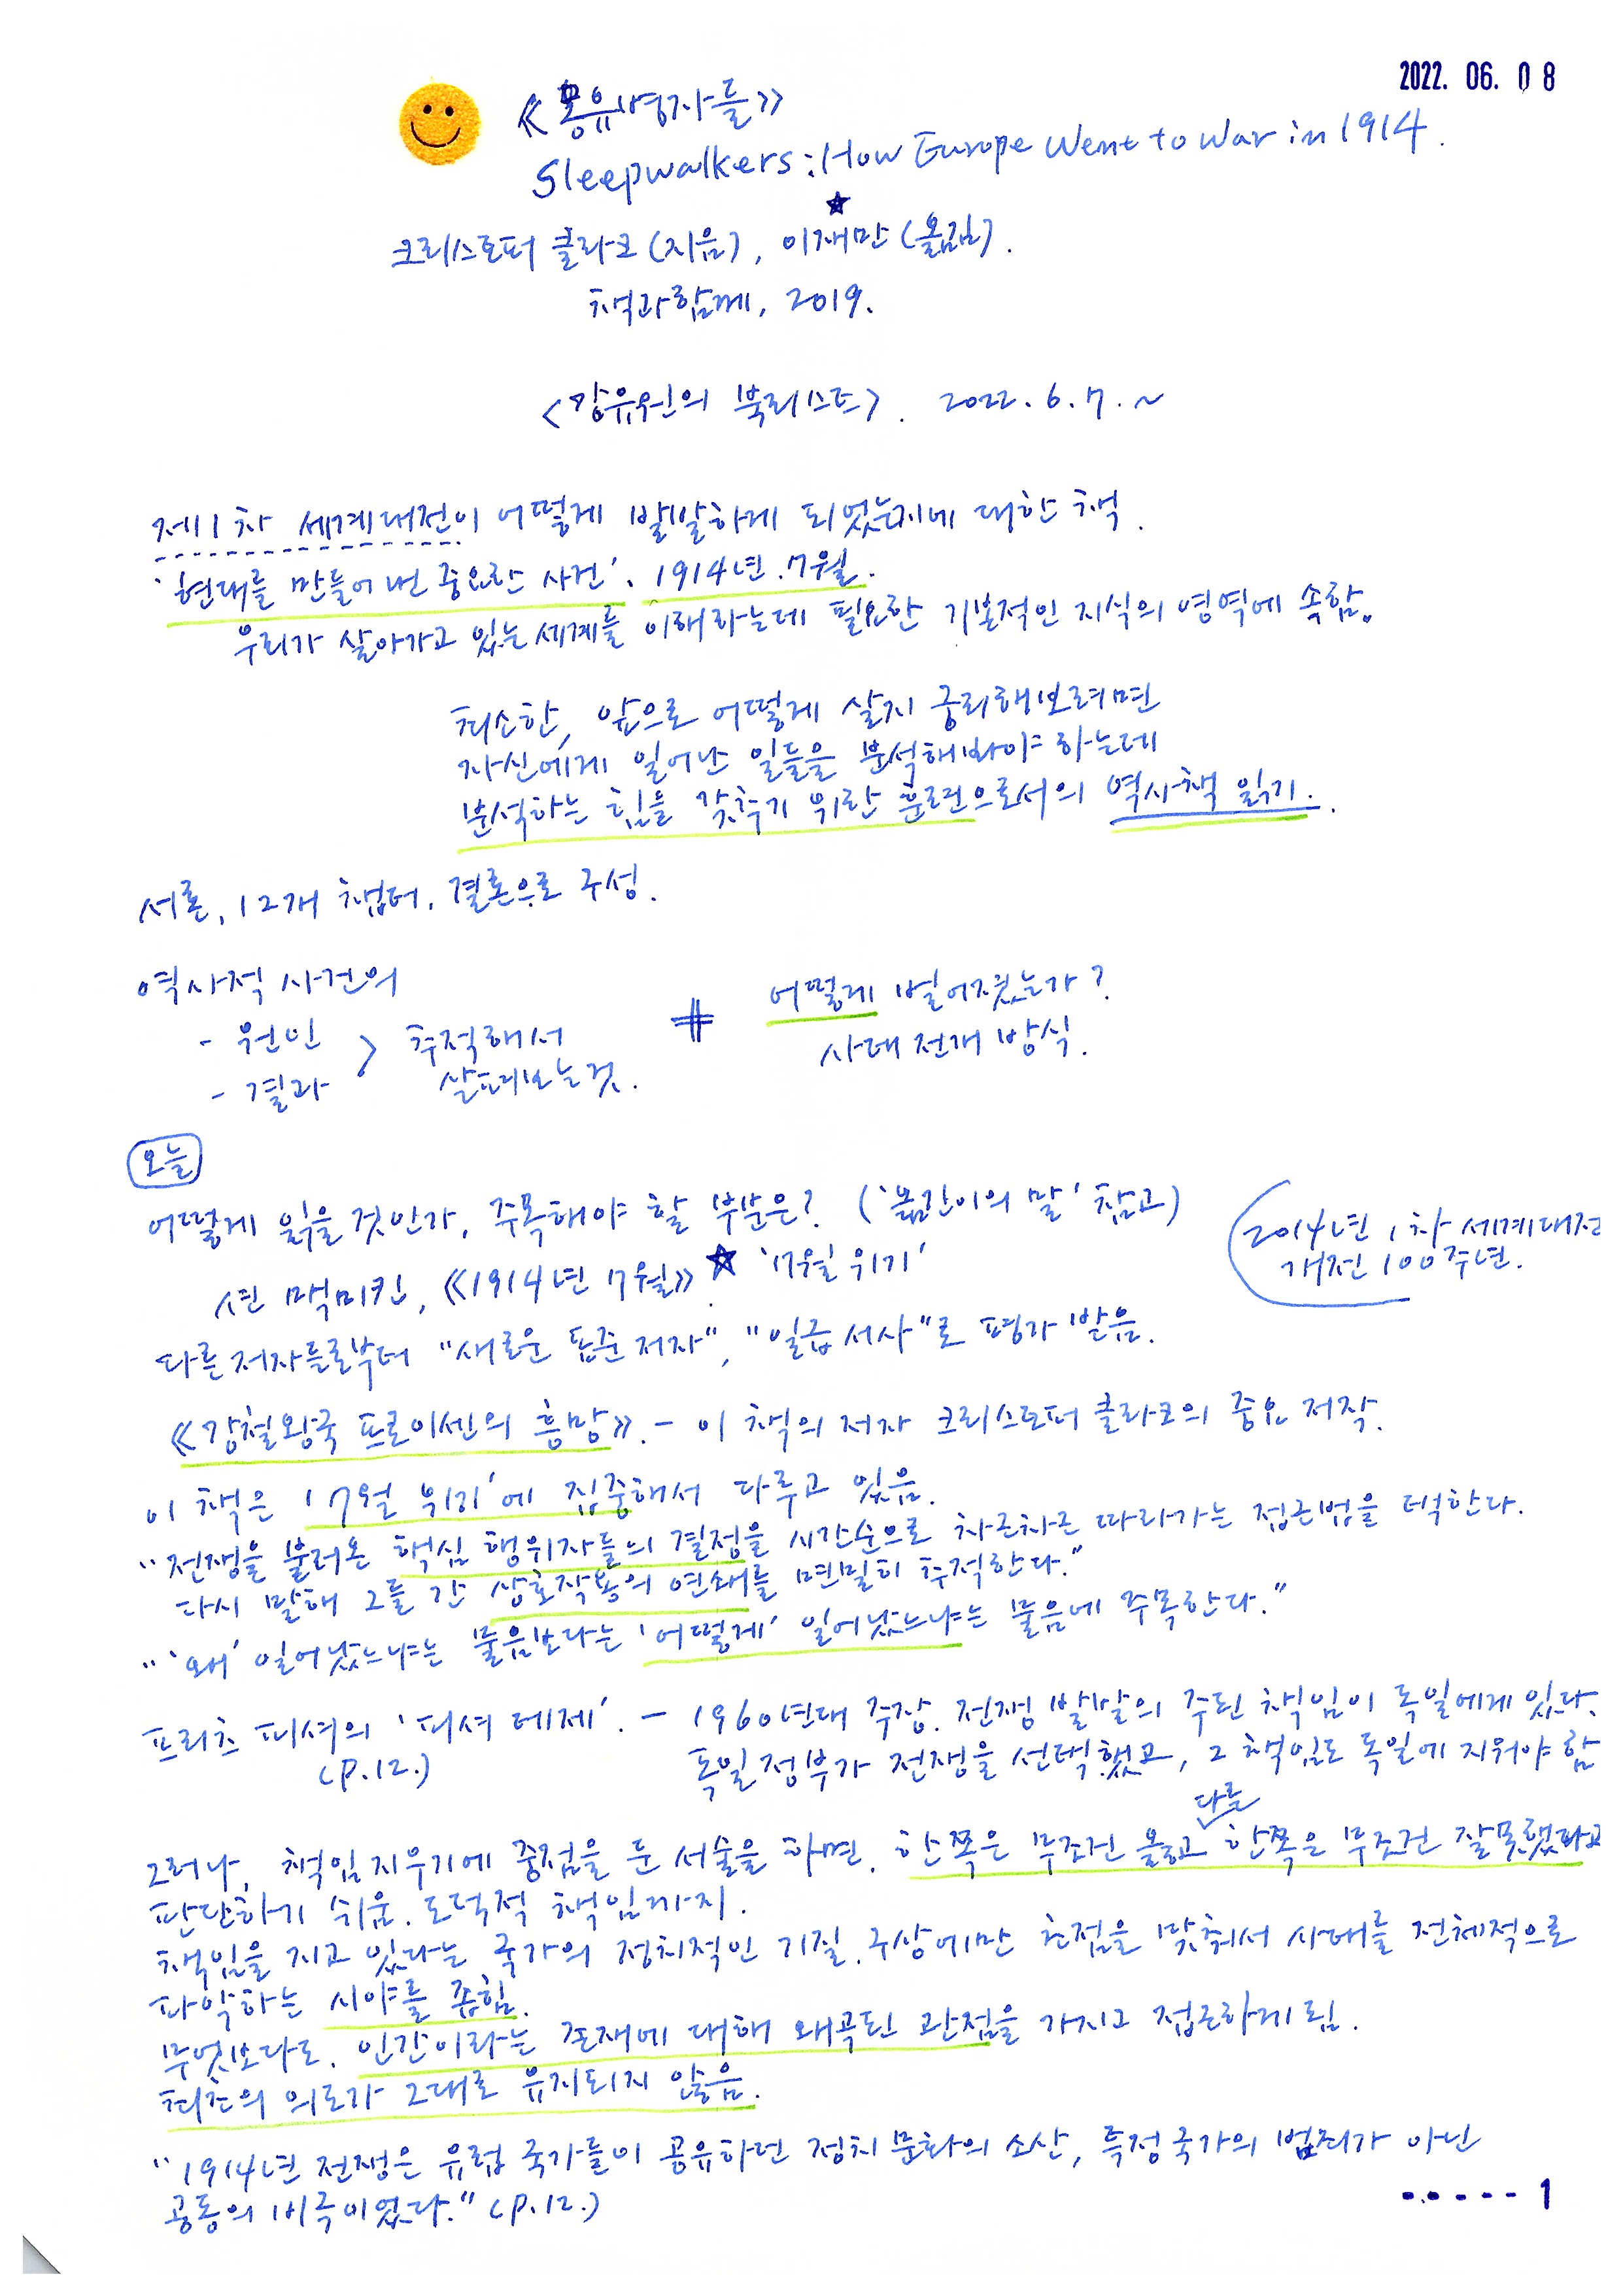 2022. 06. 08
《몽유병자들》
Sleepwalkers: How Europe Went to War in 1914.
크리스토퍼 클라크(지음), 이재만(옮김).
책과함께, 2019.
<강유원의 북리스트>. 2022. 6. 7. ~
제1차 세계대전이 어떻게 발발하게 되었는지에 대한 책.
'현대를 만들어 낸 중요한 사건', 1914년.7월.
우리가 살아가고 있는 세계를 이해하는데 필요한 기본적인 지식의 영역에 속함.
최소한, 앞으로 어떻게 살지 궁리해보려면
자신에게 일어난 일들을 분석해봐야 하는데
분석하는 힘을 갖추기 위한 훈련으로서의 역사책 읽기.
서론, 12개 챕터, 결론으로 구성.
역사적 사건의
- 원인
- 결과
> 추적해서
살펴보는것.
≠
어떻게 벌어졌는가?
사태 전개 방식.
오늘
어떻게 읽을 것인가, 주목해야 할 부분은? ('옮긴이의 말' 참고)
2014년 1차 세계대전
개전 100주년.
션 맥미킨, 《1914년 7월》 ☆ '7월 위기'
다른 저자들로부터 "새로운 표준 저작", "일급 서사"로 평가 받음.
《강철왕국 프로이센의 흥망》. - 이 책의 저자 크리스토퍼 클라크의 중요 저작.
이 책은 '7월 위기'에 집중해서 다루고 있음.
"전쟁을 불러온 핵심 행위자들의 결정을 시간순으로 차근차근 따라가는 접근법을 택한다.
다시 말해 그들 간 상호작용의 연쇄를 면밀히 추적한다."
"'왜' 일어났느냐는 물음보다는 '어떻게' 일어났느냐는 물음에 주목한다."
프리츠 피셔의 '피셔 테제'. - 1960년대 주장. 전쟁 발발의 주된 책임이 독일에게 있다.
(P.12.)
독일 정부가 전쟁을 선택했고, 그 책임도 독일에 지워야 함
그러나, 책임 지우기에 중점을 둔 서술을 하면, 한쪽은 무조건 옳고 다른 한쪽은 무조건 잘못했다고
판단하기 쉬움. 도덕적 책임까지.
책임을 지고 있다는 국가의 정치적인 기질, 구상에만 초점을 맞춰서 사태를 전체적으로
파악하는 시야를 좁힘.
무엇보다도, 인간이라는 존재에 대해 왜곡된 관점을 가지고 접근하게 됨.
최초의 의도가 그대로 유지되지 않음.
"1914년 전쟁은 유럽 국가들이 공유하던 정치 문화의 소산, 특정 국가의 범죄가 아닌
공동의 비극이었다." (P.12.)
----- 1